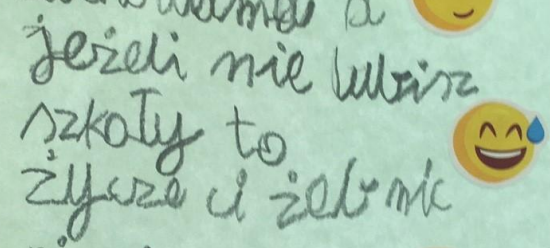 a
jeżeli nie lubisz
szkoły to
życze ci żeb nic